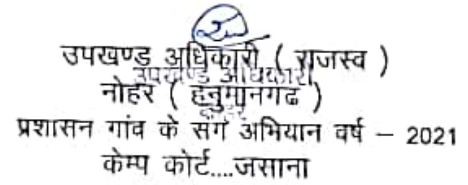 उपखण्ड अधिकारी ( राजस्व )
उपखण्ड अधिकारी
नोहर ( हनुमानगढ )
नोहर
प्रशासन गांव के संग अभियान वर्ष – 2021
केम्प कोर्ट....जसाना